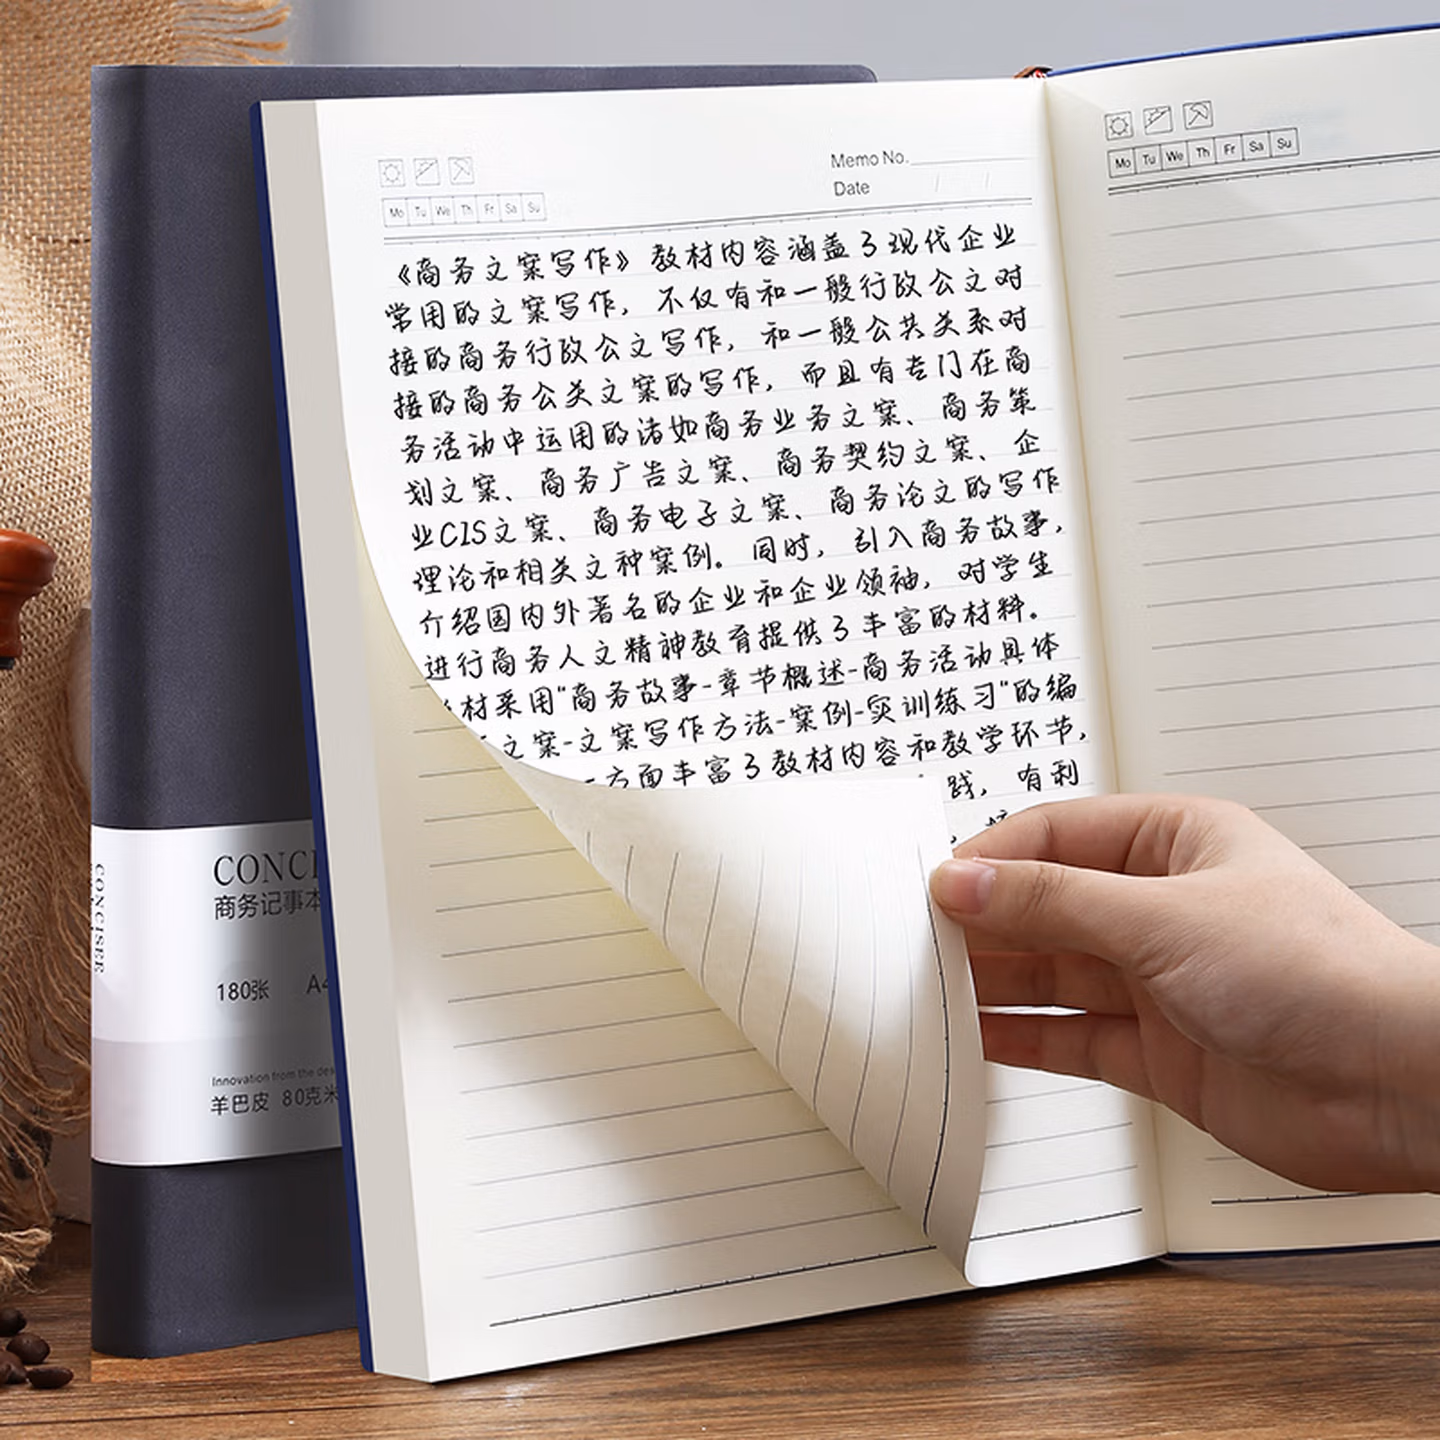 Memo No.
Date / /
Mo Tu We Th Fr Sa Su
《商务文案写作》教材内容涵盖了现代企业
常用的文案写作，不仅有和一般行政公文对
接的商务行政公文写作，和一般公共关系对
接的商务公关文案的写作，而且有专门在商
务活动中运用的诸如商务业务文案、商务策
划文案、商务广告文案、商务契约文案、企
业CIS文案、商务电子文案、商务论文的写作
理论和相关文种案例。同时，引入商务故事，
介绍国内外著名的企业和企业领袖，对学生
进行商务人文精神教育提供了丰富的材料。
材采用“商务故事-章节概述-商务活动具体
文案-文案写作方法-案例-实训练习”的编
方面丰富了教材内容和教学环节，
践，有利
Mo Tu We Th Fr Sa Su
CONCISEE
CONCI
商务记事本
180张 A4
Innovation from the des
羊巴皮 80克米